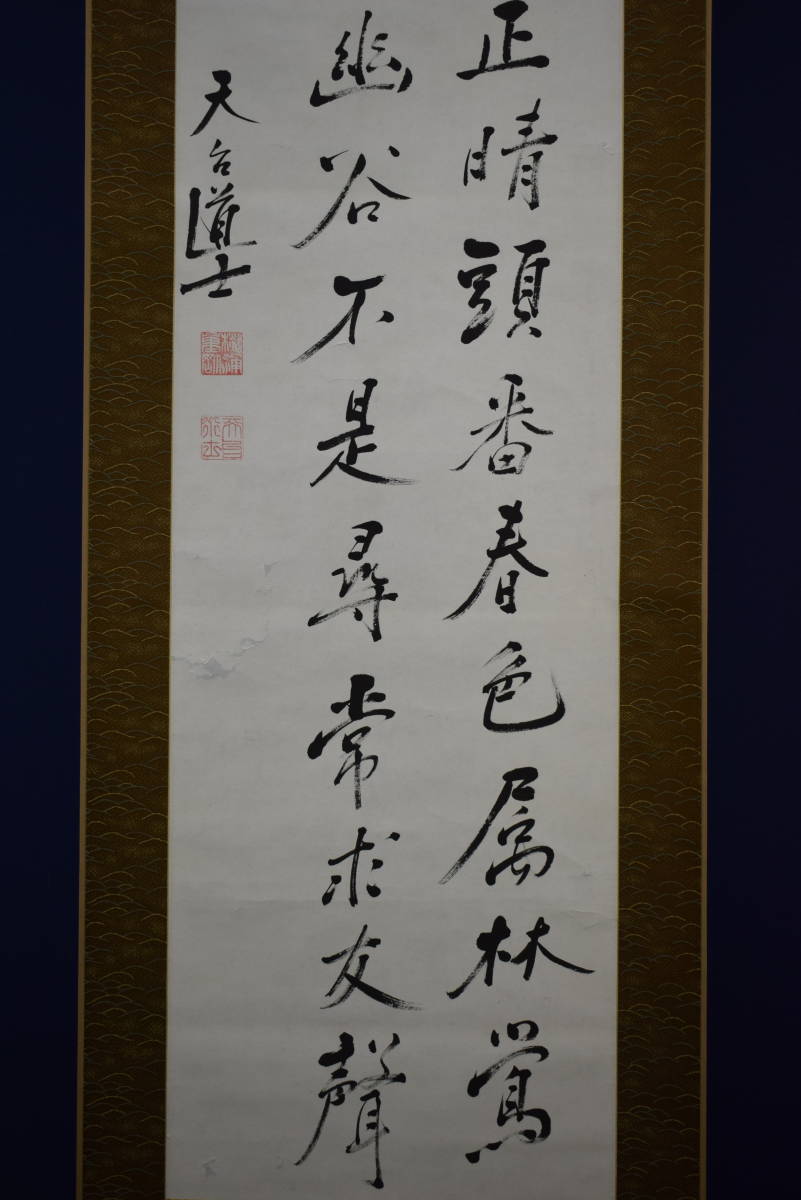 正晴頭番春色属林鶯
幽谷不是尋常求友聲
天台道士